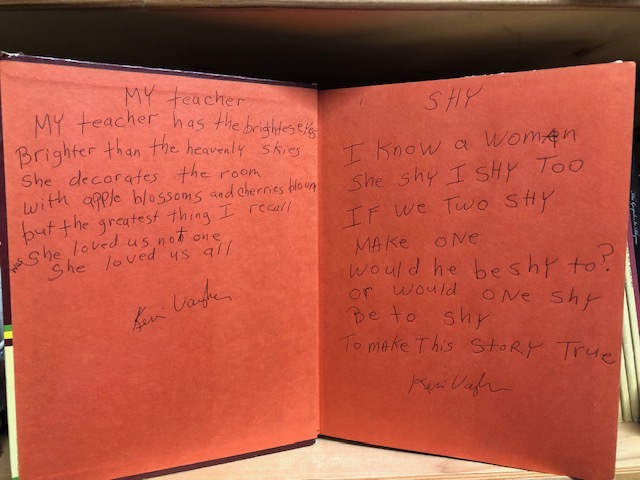 MY teacher
MY teacher has the brightes eyes
Brighter than the heavenly skies
She decorates the room
with apple blossoms and cherries bloum
but the greatest thing I recall
She loved us not one
She loved us all
SHY
I know a woman
She shy I SHY Too
IF we Two SHY
MAKE ONE
would he be shy to?
or would ONE shy
Be to shy
To MAKE This STORY True